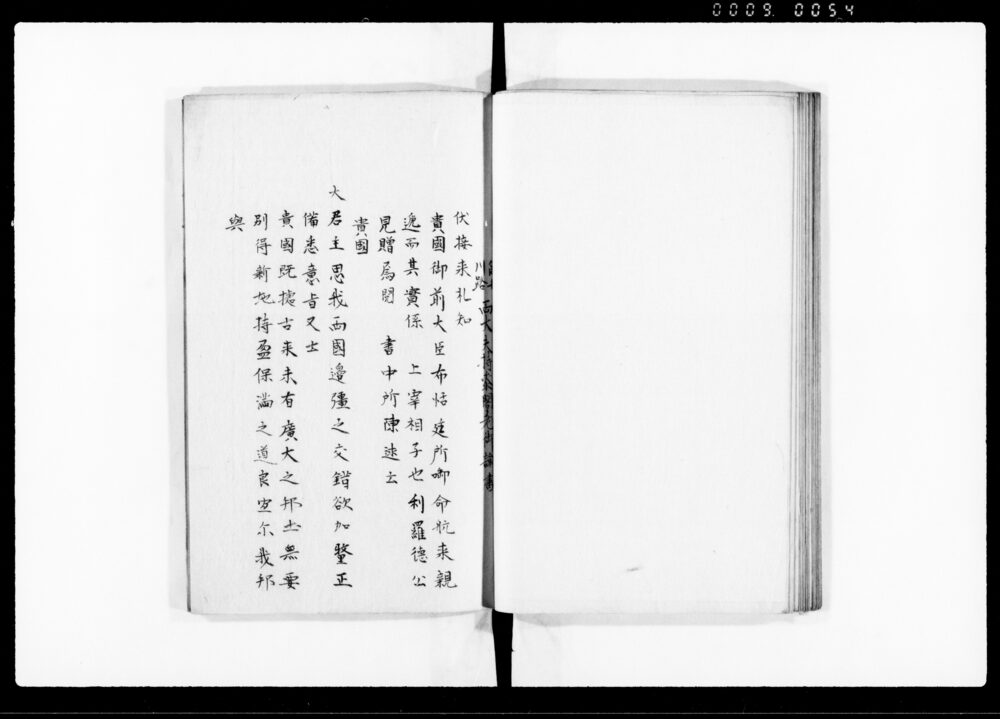 0009 0054
川路 両大
伏接来札知
貴國御前大臣布恬廷所啣命航来親
逸而其實係 上宰相子也利羅德公
見贈為閲 書中所陳述云
貴國
大君主思我両國邊彊之交錯欲加釐正
備悉意旨又士
貴國既據古来未有廣大之邦土無要
別得新地持盈保満之道良宜尓我邦
與